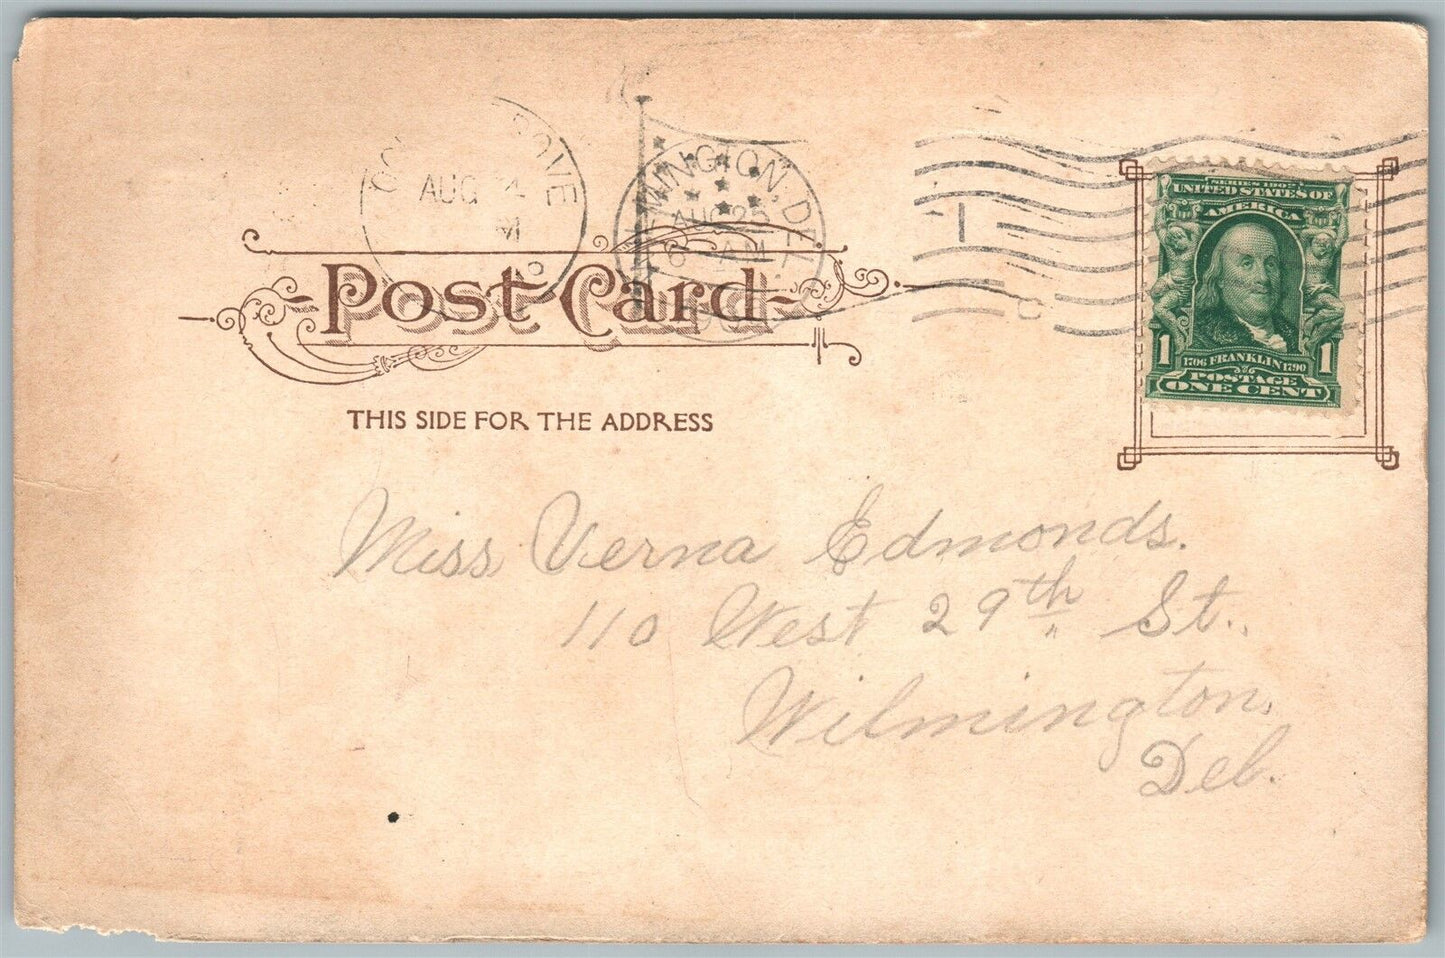 AUG
WILMINGTON, DEL.
AUG 25
6 AM
SERIES 1902
UNITED STATES OF
AMERICA
1706 FRANKLIN 1790
POSTAGE
1 ONE CENT 1
Post Card
THIS SIDE FOR THE ADDRESS
Miss Verna Edmonds.
110 West 29th St.,
Wilmington,
Del.